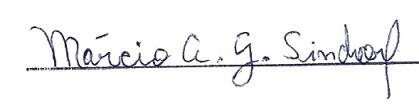 Márcio A. G. Sindoof